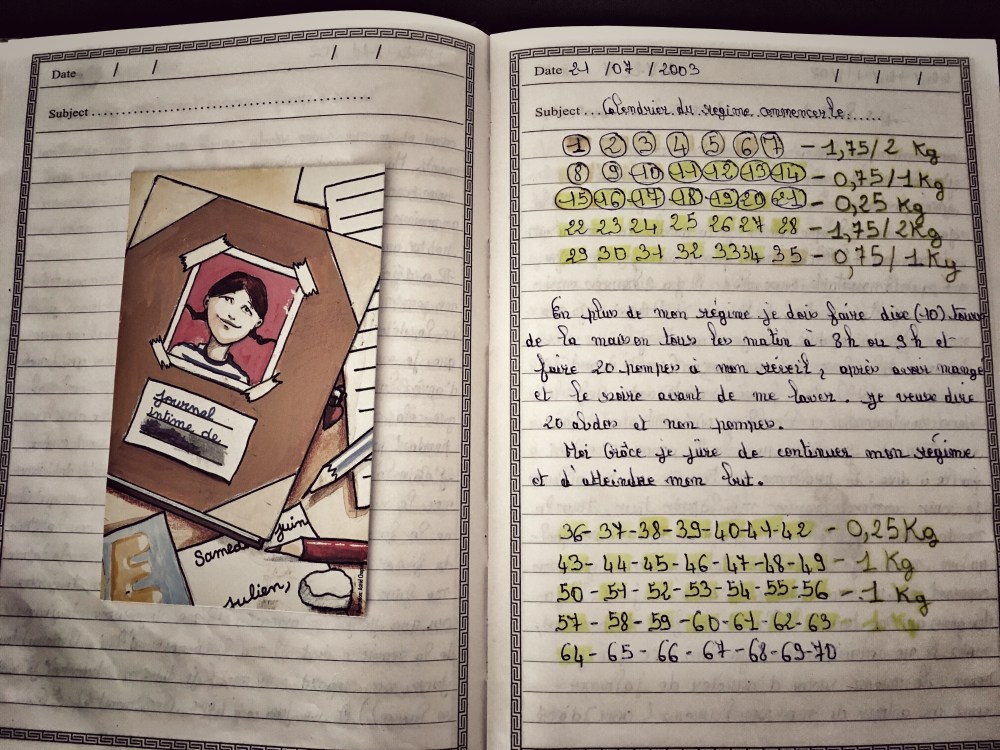 Date / / / /
Subject
Journal
intime de
Samedi juin
Julien,
Date 21 /07 / 2003 / / /
Subject ... Calendrier du régime commencer le ......
1 2 3 4 5 6 7 - 1,75/2 Kg
8 9 10 11 12 13 14 - 0,75/1Kg
15 16 17 18 19 20 21 - 0,25 Kg
22 23 24 25 26 27 28 - 1,75/2Kg
29 30 31 32 33 34 35 - 0,75/1Kg
En plus de mon régime je dois faire dixe (10) tours
de la maison tous les matin à 8h ou 9h et
faire 20 pompes à mon réveil, après avoir mangé
et le soire avant de me laver. Je veux dire
20 abdos et non pompes.
Moi Grâce je jûre de continuer mon régime
et d'atteindre mon but.
36-37-38-39-40-41-42 - 0,25Kg
43-44-45-46-47-48-49 - 1 Kg
50-51-52-53-54-55-56 - 1 Kg
57-58-59-60-61-62-63 - 1 Kg
64-65-66-67-68-69-70